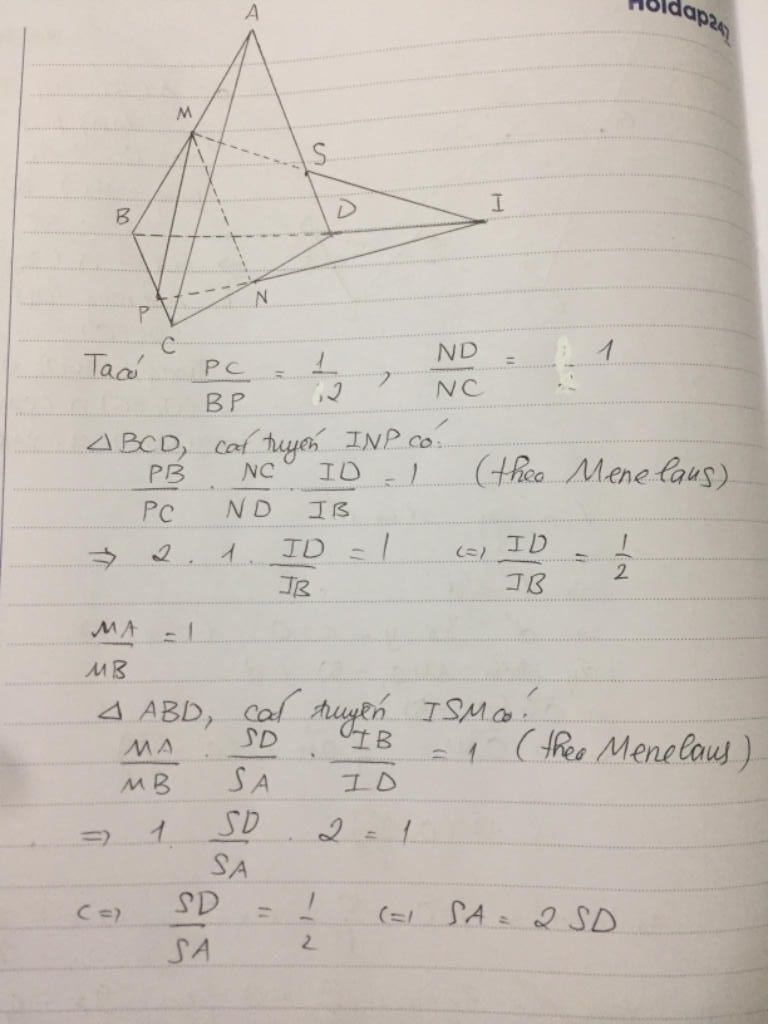 Hoidap247
A
M
S
B
D
I
P
N
C
Ta có PC/BP = 1/2 , ND/NC = 1
△BCD, cát tuyến INP có:
PB/PC . NC/ND . ID/IB = 1 (theo Menelaus)
=> 2 . 1 . ID/IB = 1 <=> ID/IB = 1/2
MA/MB = 1
△ ABD, cát tuyến ISM có:
MA/MB . SD/SA . IB/ID = 1 (theo Menelaus)
=> 1 . SD/SA . 2 = 1
<=> SD/SA = 1/2 <=> SA = 2 SD